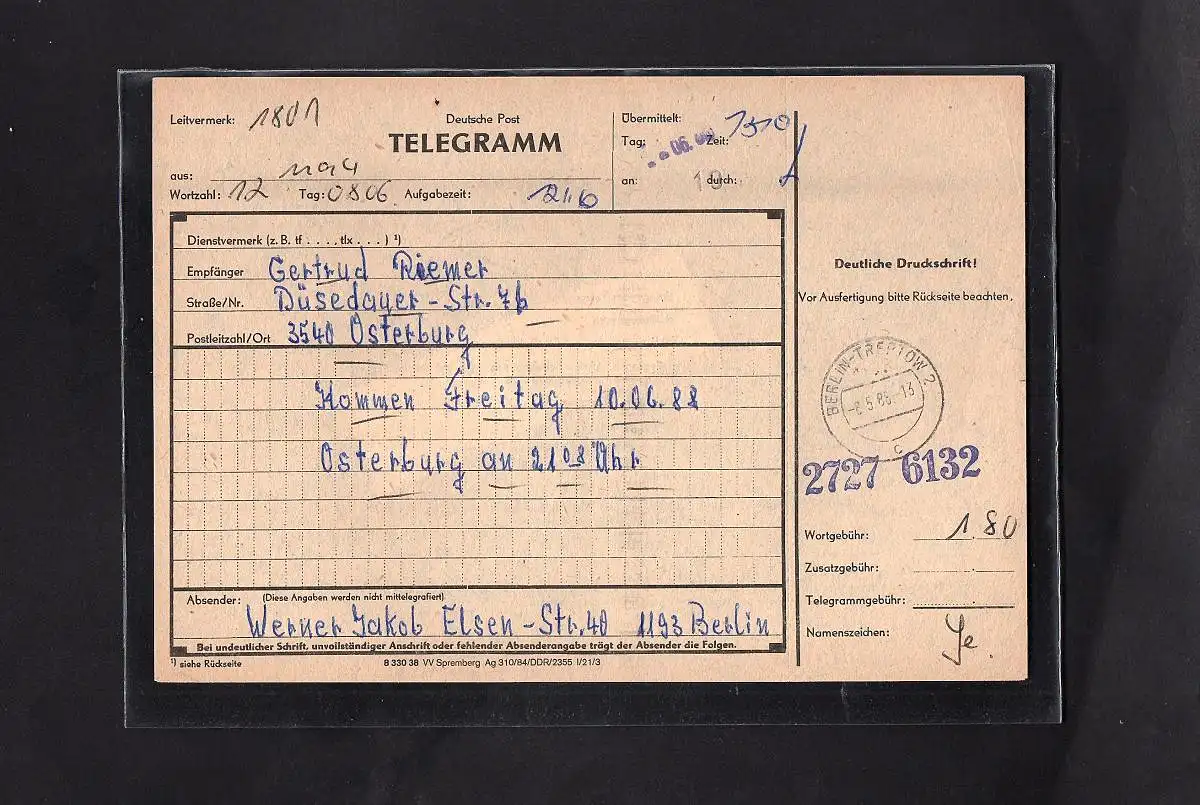 Leitvermerk: 1801
Deutsche Post
TELEGRAMM
aus:
Wortzahl: 12 Tag: 0806. Aufgabezeit:
Übermittelt:
Tag: 06. Zeit: 1310
an: durch:
Dienstvermerk (z. B. tf . . . ., tlx . . . ) ¹)
Empfänger Gertrud Riemer
Straße/Nr. Düsedauer-Str. 7b
Postleitzahl/Ort 3540 Osterburg
Kommen Freitag 10.06.88
Osterburg an 21 08 Uhr
Absender: (Diese Angaben werden nicht mittelegrafiert)
Werner Jakob Elsen-Str. 40 1193 Berlin
Bei undeutlicher Schrift, unvollständiger Anschrift oder fehlender Absenderangabe trägt der Absender die Folgen.
¹) siehe Rückseite
8 330 38 VV Spremberg Ag 310/84/DDR/2355 I/21/3
Deutliche Druckschrift!
Vor Ausfertigung bitte Rückseite beachten.
BERLIN-TREPTOW 2
-13
c
2727 6132
Wortgebühr: 1.80
Zusatzgebühr:
Telegrammgebühr:
Namenszeichen: Je.